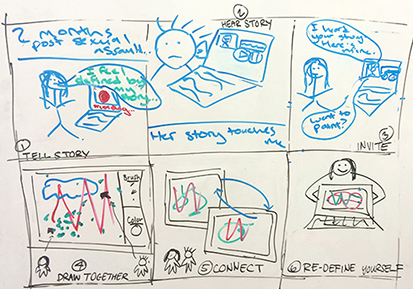 2 months
post sexual
assault...
I feel
defined by
my
story...
① TELL STORY
② HEAR STORY
Her story touches
me
I heard
your story
Here is
mine.
Want to
paint?
③ INVITE
Brush
Color
④
DRAW TOGETHER
⑤ CONNECT
⑥ RE-DEFINE YOURSELF